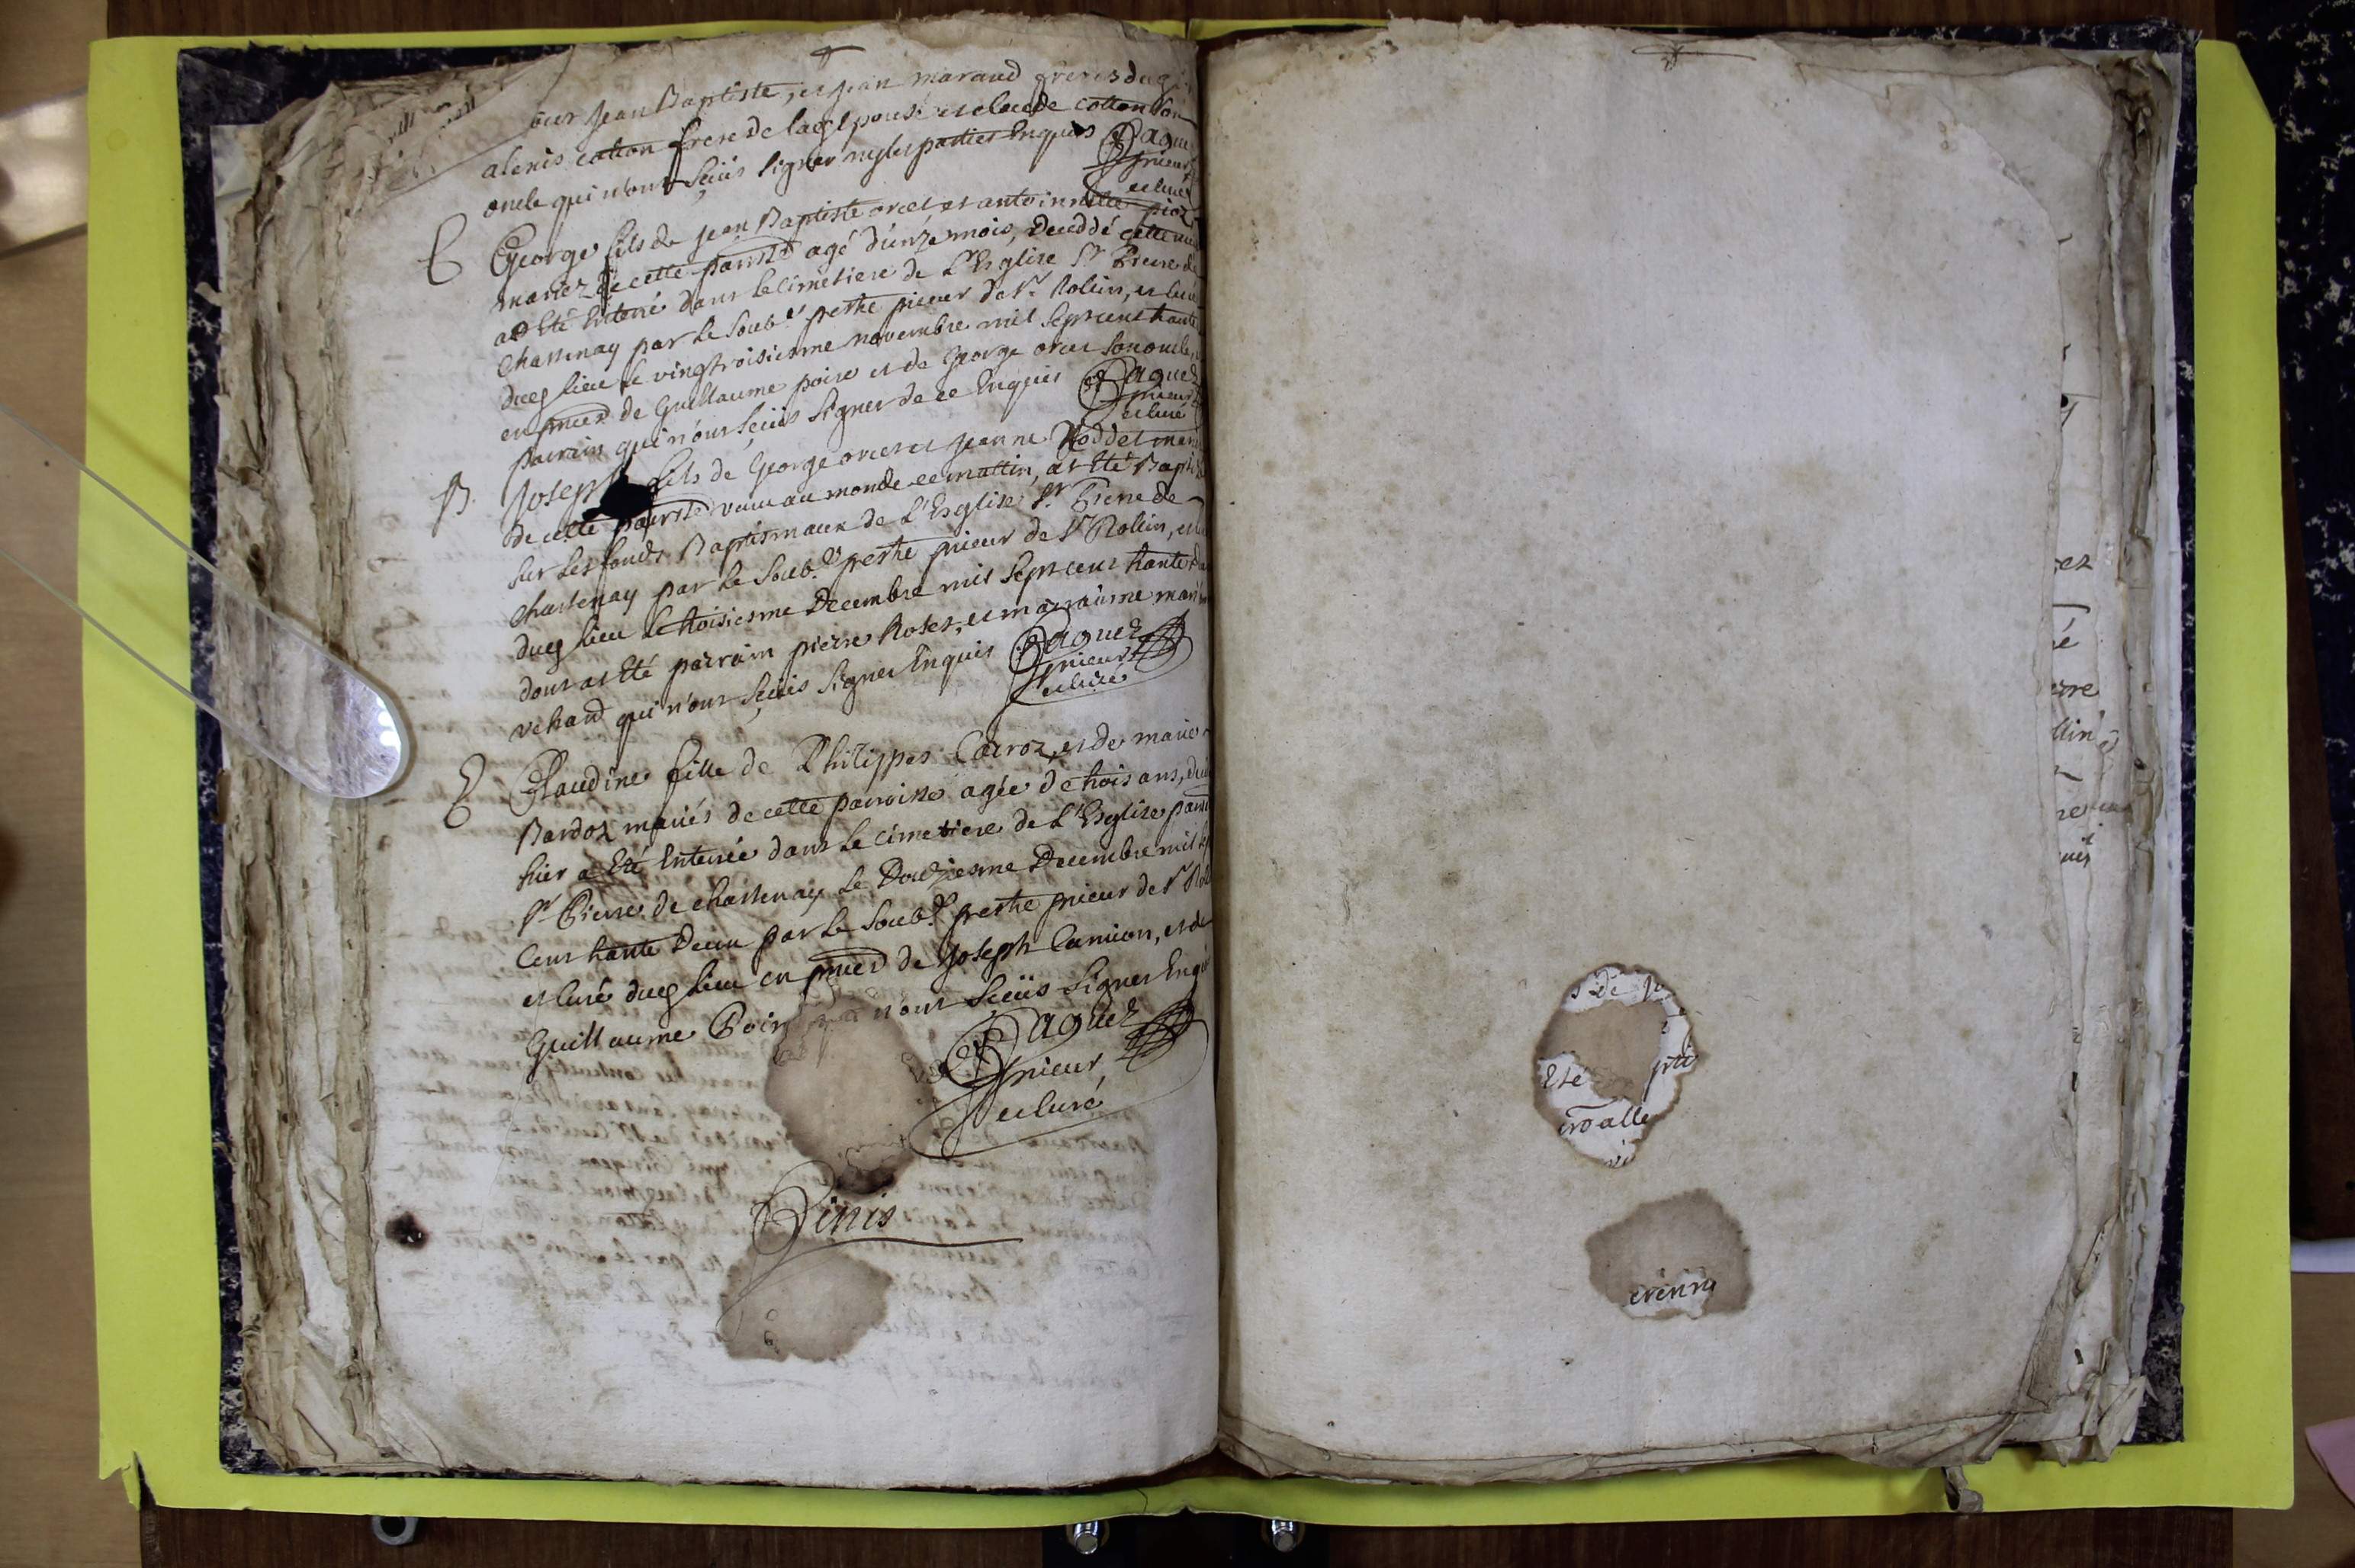 Jean Baptiste, et Jean maraud freres dug
alexis cotton frere de laeg espouse et claude cotton son
oncle qui n'ont sçüs signer ny les parties Enquis Paquez
prieur
et curé
E George fils de Jean Baptiste orcet et antoinette pioz
mariez de cette parisse agé d'unze mois, Deceddé cette nui
at Eté Enterré dans le cimetiere de L'Esglise St Pierre de
Chastenay par le Soub.é prestre prieur de St Rollin, et curé
dueg lieu le vingtroisiesme novembre mil Sept cent trante
en pnces de Guillaume poire et de George orcet son oncle,
parrain qui n'ont sçüs signer de ce Enquis Paquez
prieur
et curé
B. Joseph fils de George orcet et Jeanne Noddet mari
de cette parisse venu au monde ce mattin, at Eté Bapti
sur les fonds Baptismaux de L'Esglise St. Pierre de
Chastenay par le Soub.é prestre prieur de St Rollin, et
dueg lieu le troisiesme Decembre mil Sept cent trante
dont at Eté parrain pierre Roset, et marraine mari
vehand qui n'ont sçüs signer Enquis Paquez
prieur
et curé
E Claudine fille de Philippes Carroz, et de marie
Bardoz mariés de cette parroisse agée de trois ans,
hier a Eté Enterrée dans le cimetiere de L'Esglise
St Pierre de Chastenay le Douziesme Decembre mil
Cent trante Deux par le Soub.é prestre prieur de St
et curé dueg lieu en pnces de Joseph Camion, et de
Guillaume Poir n'ont sçüs signer Enqui
Paquez
prieur
et curé
Finis
s de
Eté